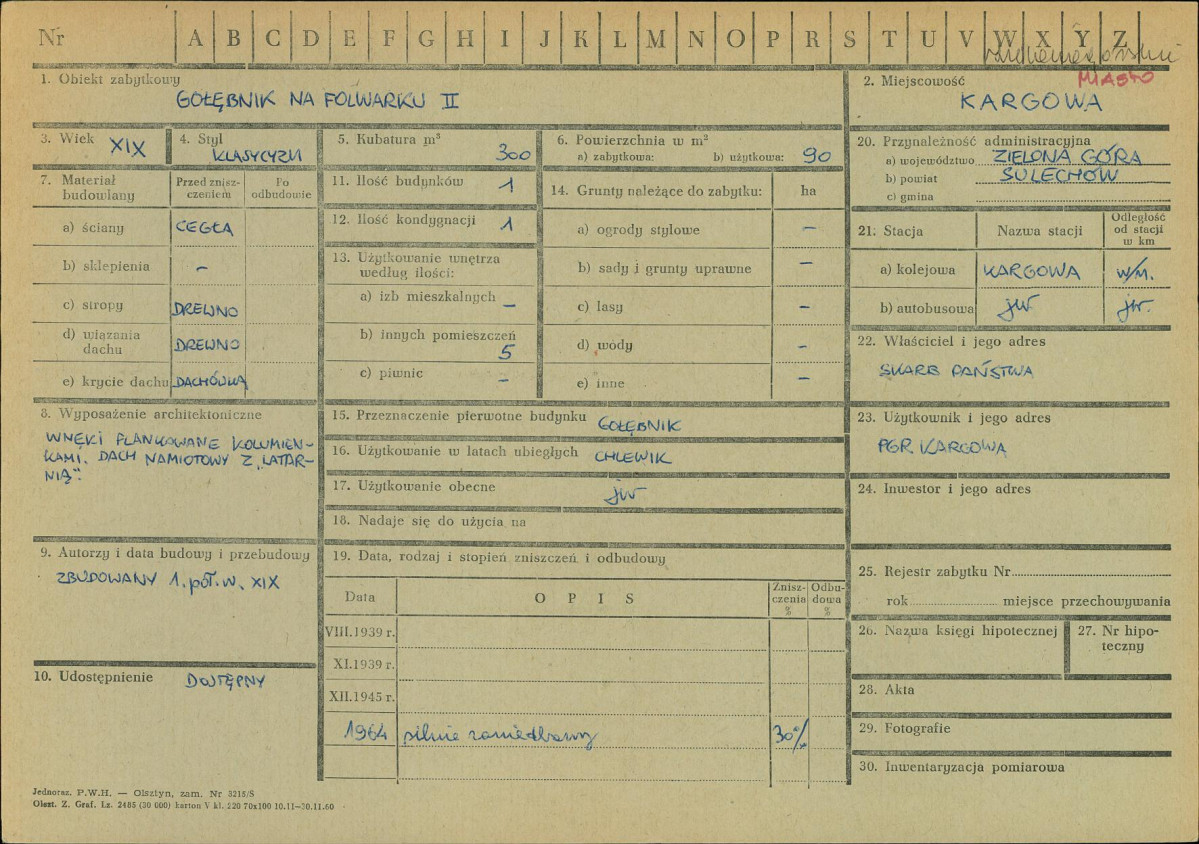 Nr A B C D E F G H I J K L M N O P R S T U V W X Y Z
1. Obiekt zabytkowy
GOŁĘBNIK NA FOLWARKU II
2. Miejscowość MIASTO
KARGOWA
3. Wiek XIX
4. Styl KLASYCYZM
5. Kubatura m³ 300
6. Powierzchnia w m²
a) zabytkowa: b) użytkowa: 90
7. Materiał budowlany
Przed znisz-
czeniem
Po
odbudowie
a) ściany CEGŁA
b) sklepienia –
c) stropy DREWNO
d) wiązania
dachu DREWNO
e) krycie dachu DACHÓWKA
8. Wyposażenie architektoniczne
WNĘKI FLANKOWANE KOLUMIEN-
KAMI. DACH NAMIOTOWY Z „LATAR-
NIĄ".
9. Autorzy i data budowy i przebudowy
ZBUDOWANY 1. poł. w. XIX
10. Udostępnienie DOSTĘPNY
11. Ilość budynków 1
12. Ilość kondygnacji 1
13. Użytkowanie wnętrza
według ilości:
a) izb mieszkalnych –
b) innych pomieszczeń
5
c) piwnic –
14. Grunty należące do zabytku: ha
a) ogrody stylowe –
b) sady i grunty uprawne –
c) lasy –
d) wody –
e) inne –
15. Przeznaczenie pierwotne budynku GOŁĘBNIK
16. Użytkowanie w latach ubiegłych CHLEWIK
17. Użytkowanie obecne jw
18. Nadaje się do użycia na
19. Data, rodzaj i stopień zniszczeń i odbudowy
Data O P I S Znisz-
czenia
% Odbu-
dowa
%
VIII.1939 r.
XI.1939 r.
XII.1945 r.
1964 silnie zaniedbany 30%
20. Przynależność administracyjna
a) województwo ZIELONA GÓRA
b) powiat SULECHÓW
c) gmina
21. Stacja Nazwa stacji Odległość
od stacji
w km
a) kolejowa KARGOWA w/m.
b) autobusowa jw. jw.
22. Właściciel i jego adres
SKARB PAŃSTWA
23. Użytkownik i jego adres
PGR KARGOWA
24. Inwestor i jego adres
25. Rejestr zabytku Nr
rok miejsce przechowywania
26. Nazwa księgi hipotecznej
27. Nr hipo-
teczny
28. Akta
29. Fotografie
30. Inwentaryzacja pomiarowa
Jednoraz. P.W.H. — Olsztyn, zam. Nr 3215/S
Olszt. Z. Graf. Lz. 2485 (30 000) karton V kl. 220 70x100 10.11—30.11.60